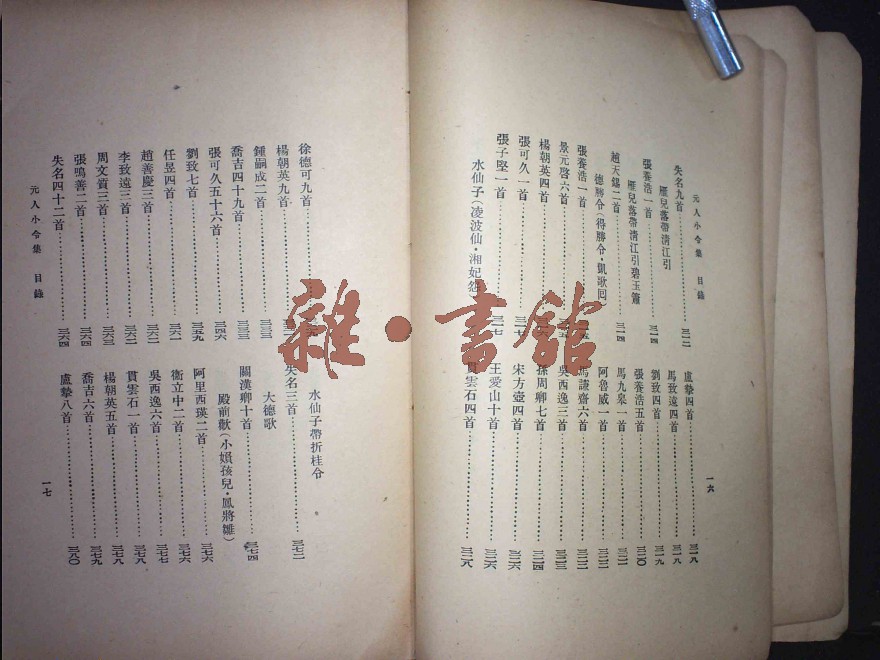 元人小令集 目錄
失名九首……三一二
雁兒落帶清江引
張養浩一首……三一四
雁兒落帶清江引碧玉簫
趙天錫二首……三一四
德勝令(得勝令·凱歌回
張養浩一首……
景元啓六首……
楊朝英四首……
張可久一首……三一七
張子堅一首……三一七
水仙子(凌波仙·湘妃怨
盧摯四首……三一八
馬致遠四首……三一八
劉致四首……三一九
張養浩五首……三二〇
馬九皋一首……三二一
阿魯威一首……三二二
馬謙齋六首……三二二
吳西逸三首……三二三
孫周卿七首……三二四
宋方壺四首……三二六
王愛山十首……三二六
貫雲石四首……三二八
一六
徐德可九首……
楊朝英九首……
鍾嗣成二首……三三三
喬吉四十九首……三三三
張可久五十六首……三四六
劉致七首……三五九
任昱四首……三六一
趙善慶三首……三六二
李致遠三首……三六二
周文質三首……三六三
張鳴善二首……三六四
失名四十二首……三六四
元人小令集 目錄
水仙子帶折桂令
失名三首……三七二
大德歌
關漢卿十首……三七四
殿前歡(小婦孩兒·鳳將雛)
阿里西瑛二首……三七六
衞立中二首……三七六
吳西逸六首……三七七
貫雲石一首……三七八
楊朝英五首……三七八
喬吉六首……三七九
盧摯八首……三八〇
一七
雜·書館